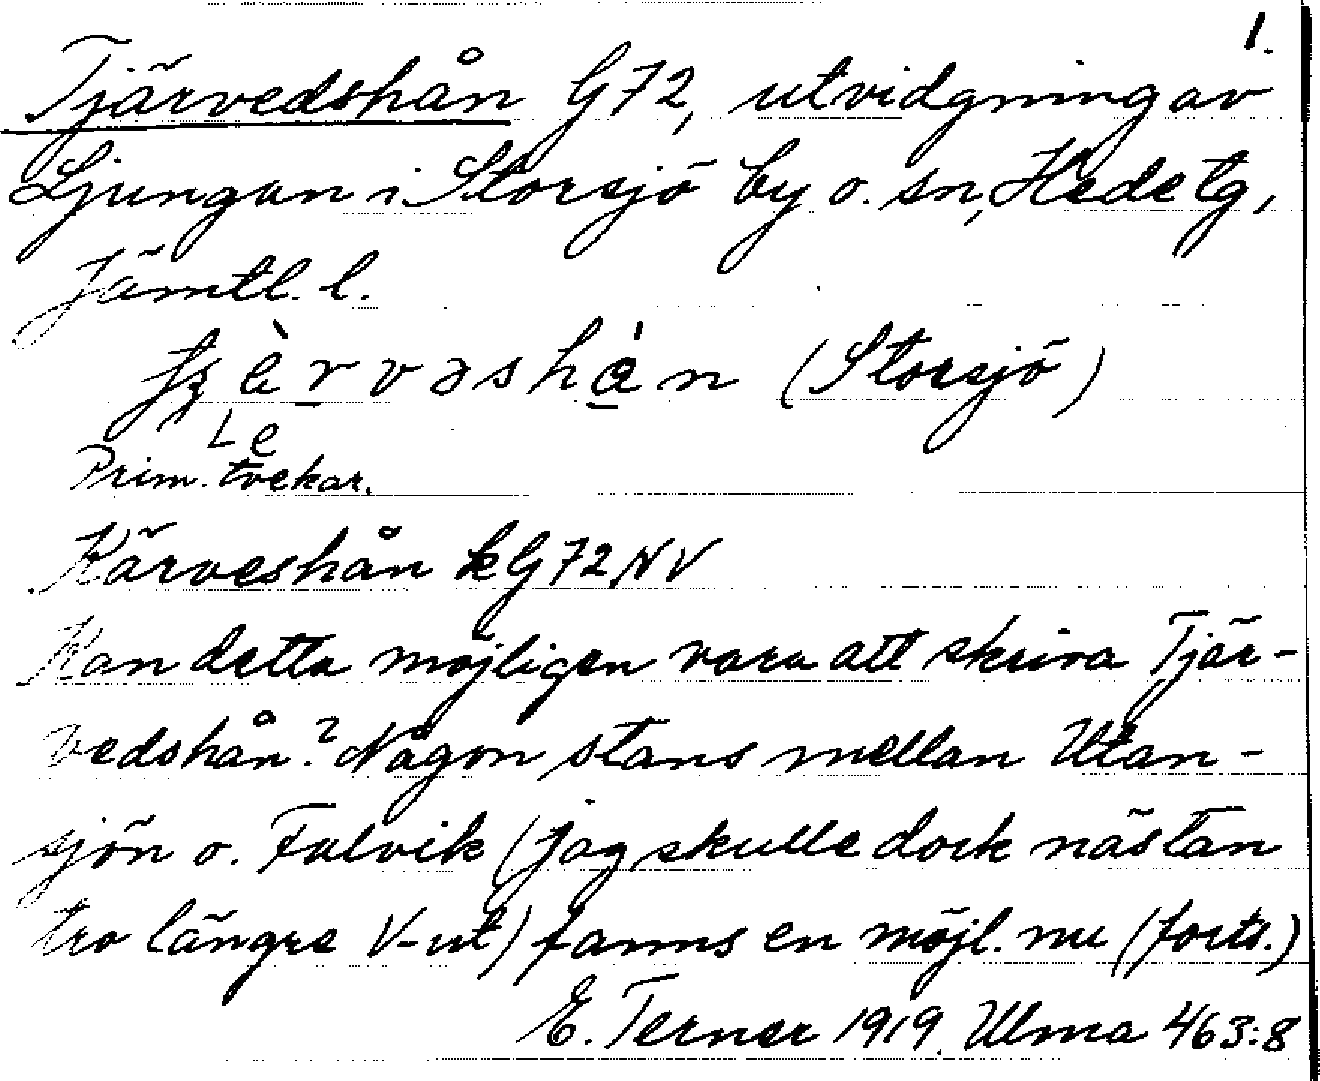 1.
Tjärvedshån G72, utvidgning av
Ljungan i Storsjö by o. sn, Hede tg,
Jämtl. l.
(Storsjö)
Prim. tvekar.
Kärveshån k G72 NV
Kan detta möjligen vara att skriva Tjär-
vedshån? Någon stans mellan Utan-
sjön o. Falvik (jag skulle dock nästan
tro längre V-ut) fanns en möjl. nu (forts.)
E. Terner 1919. Ulma 463:8